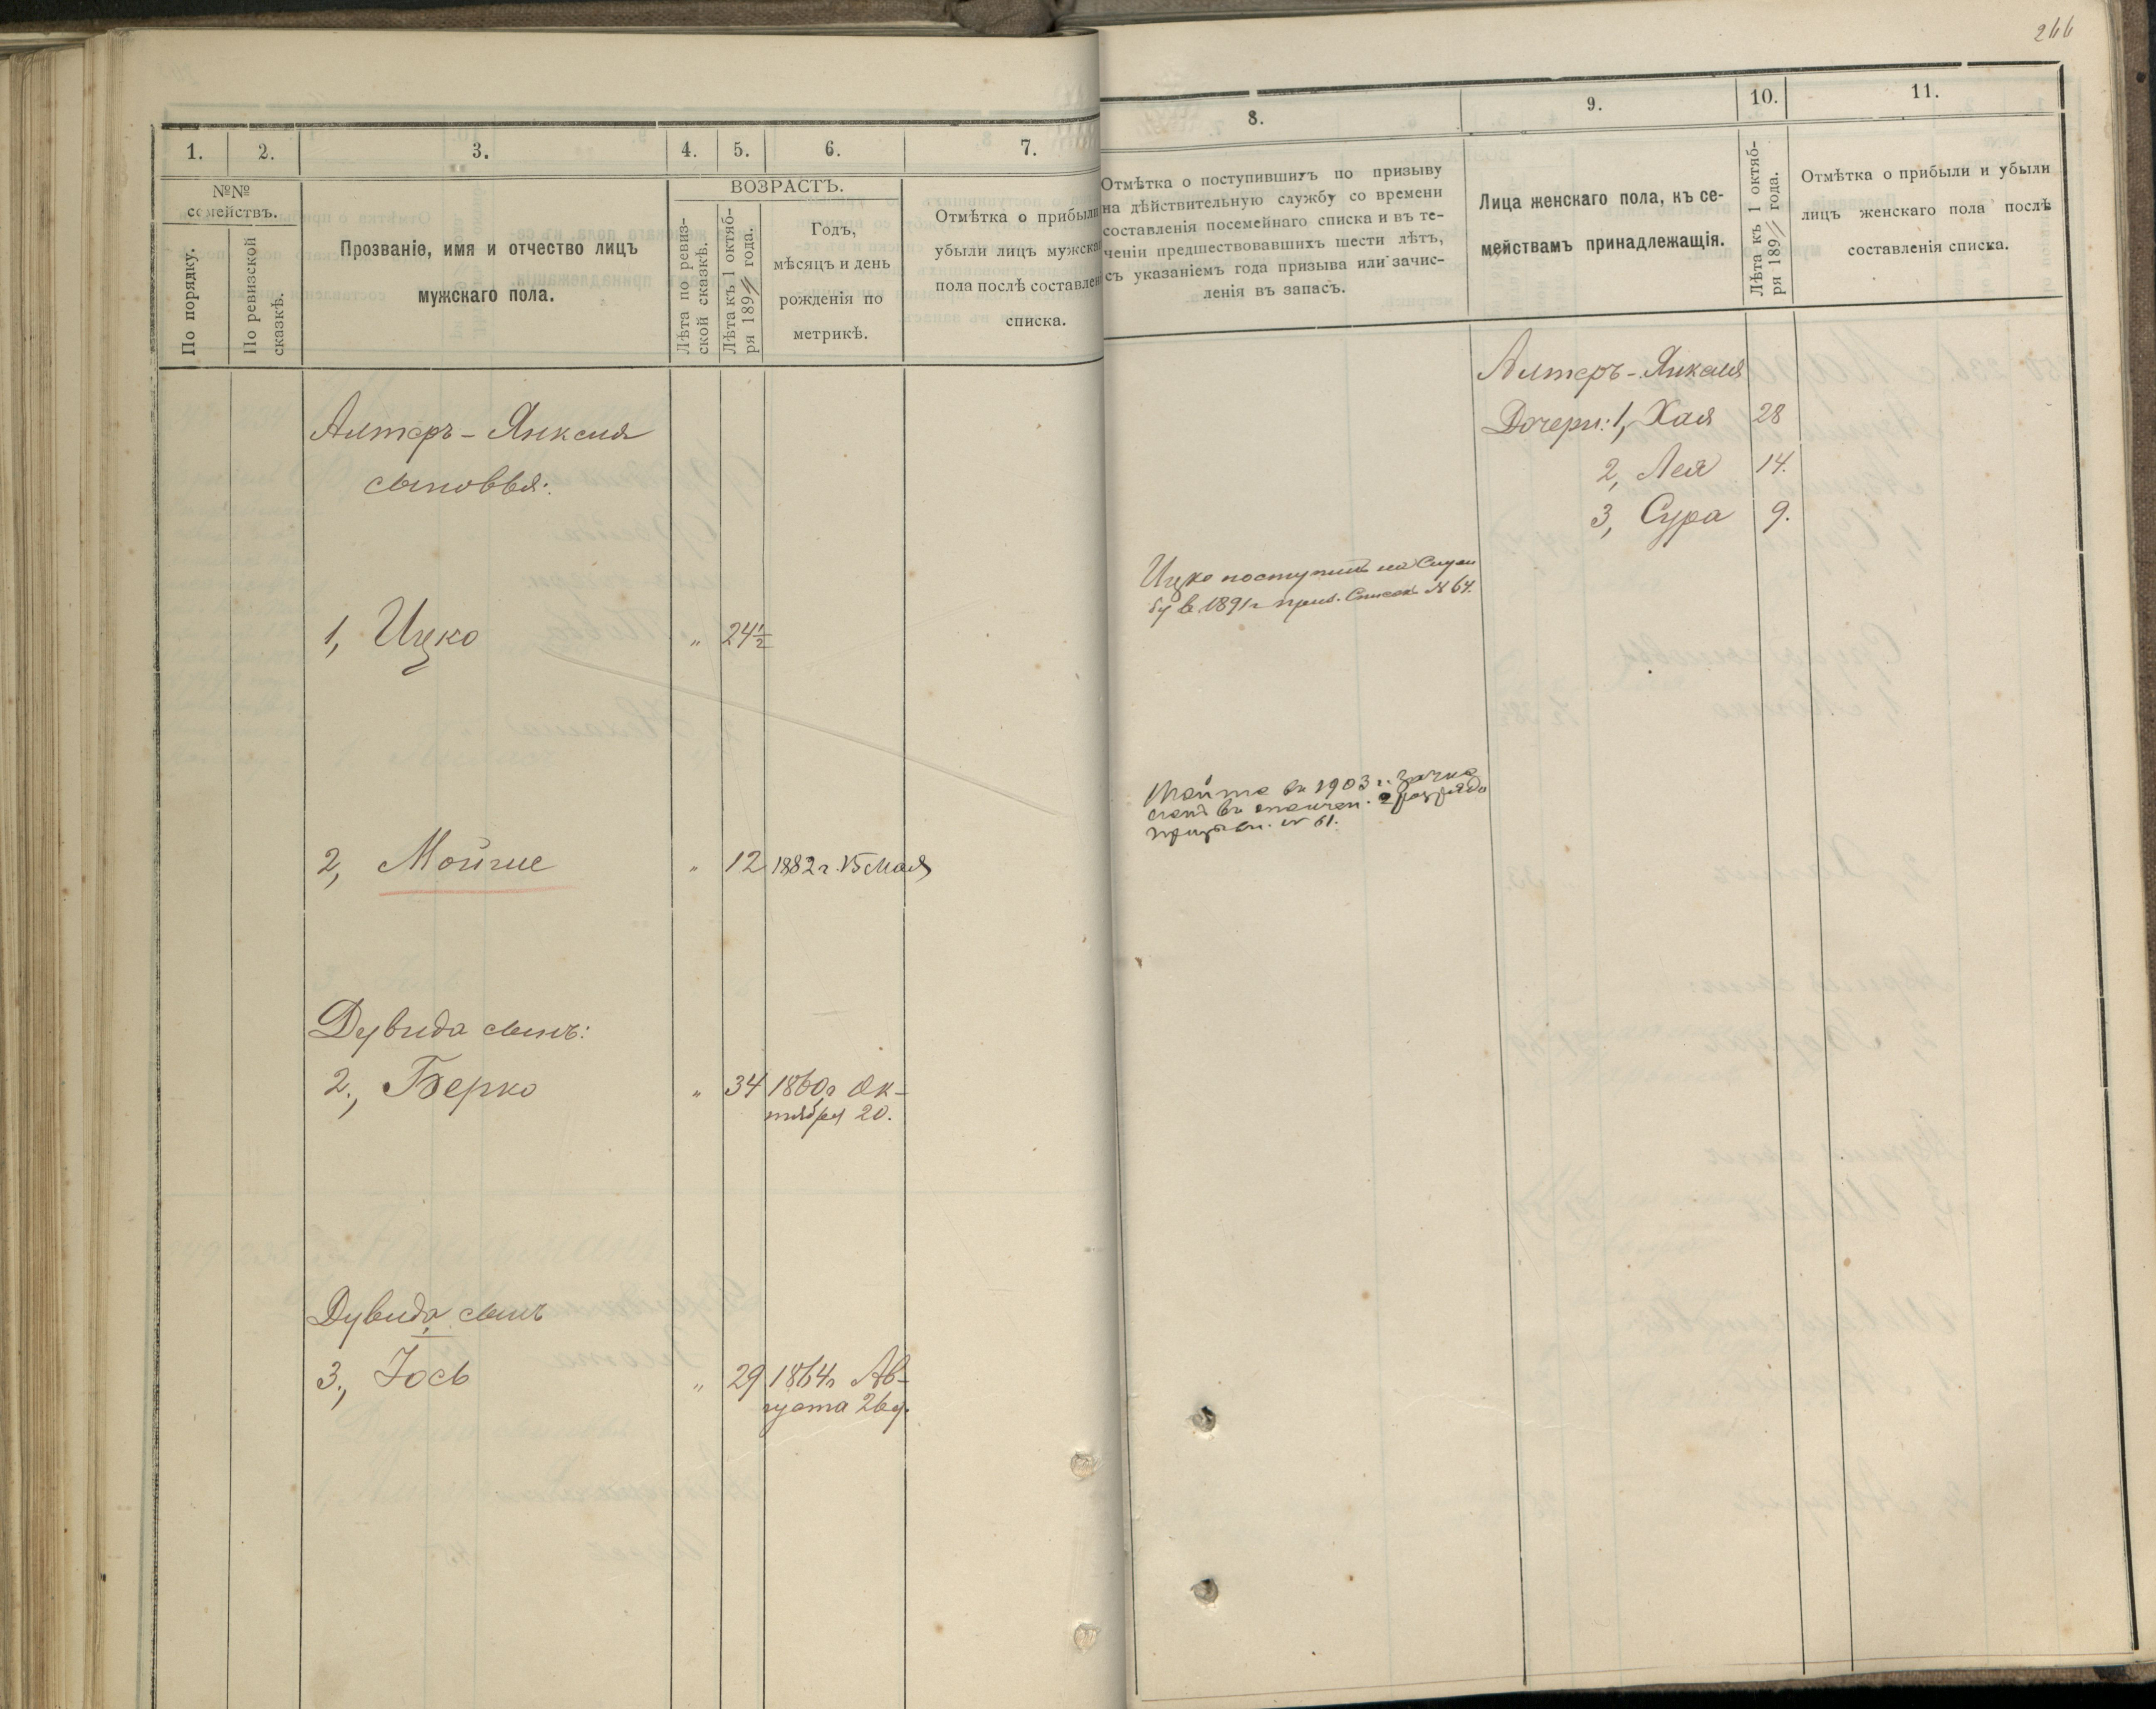 266
1.
2.
3.
4.
5.
6.
7.
№№
семействъ.
По порядку.
По ревизской
сказкѣ.
Прозваніе, имя и отчество лицъ
мужскаго пола.
ВОЗРАСТЪ.
Лѣта по ревиз-
ской сказкѣ.
Лѣта къ 1 октяб-
ря 189 года.
Годъ,
мѣсяцъ и день
рожденія по
метрикѣ.
Отмѣтка о прибыли
убыли лицъ мужска
пола послѣ составлен
списка.
Алтеръ-Янкеля
сыновья:
1, Ицко " 24½
2, Мойше " 12 1882 г. 15 Мая
Дувида сынъ:
2., Берко " 34 1860 г Ок-
тября 20.
Дувида сынъ
3., Іось " 29 1864 г Ав-
густа 26 д.
8.
9.
10.
11.
Отмѣтка о поступившихъ по призыву
на дѣйствительную службу со времени
составленія посемейнаго списка и въ те-
ченіи предшествовавшихъ шести лѣтъ,
съ указаніемъ года призыва или зачис-
ленія въ запасъ.
Лица женскаго пола, къ се-
мействамъ принадлежащія.
Лѣта къ 1 октяб-
ря 189 года.
Отмѣтка о прибыли и убыли
лицъ женскаго пола послѣ
составленія списка.
Алтеръ-Янкеля
Дочери: 1, Хая 28
2, Лея 14.
3, Сура 9.
Ицко поступилъ на Служ
бу в 1891 г приз. Список № 64.
в 1903 г. зачис
ополчен. 2 разряда
призывн. № 61.